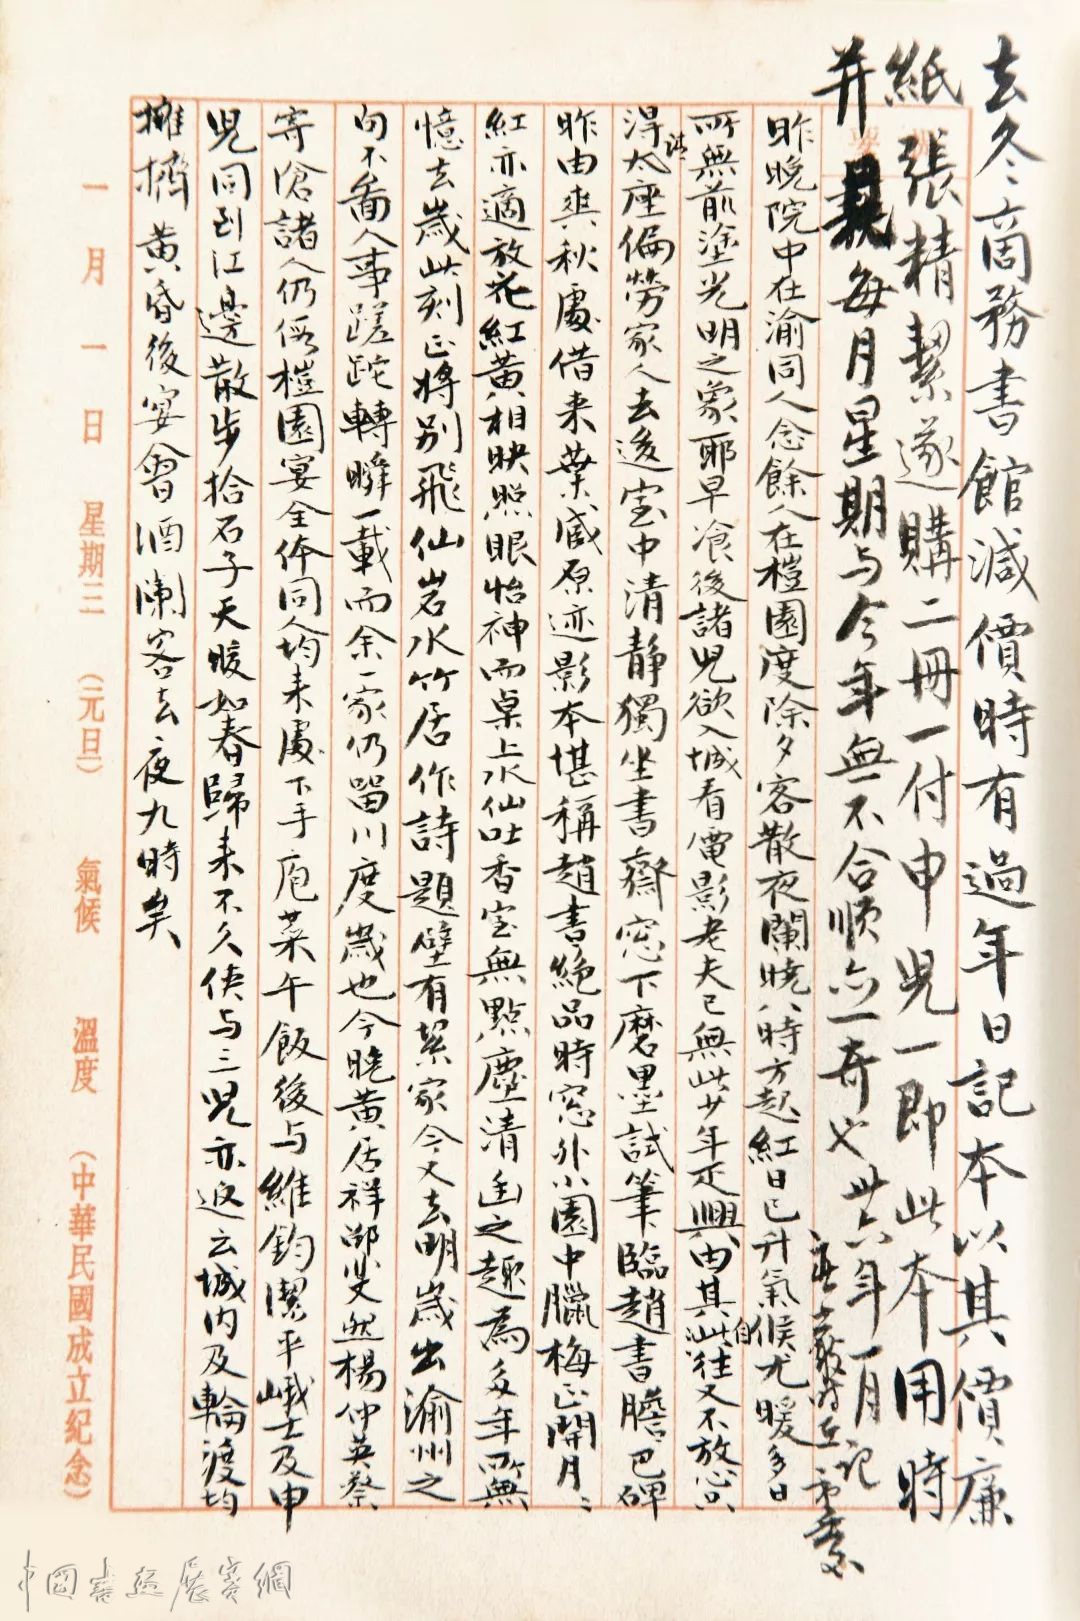 去冬商務書館減價時有過年日記本以其價廉
紙張精絜遂購二冊一付申兒一即此本用時
并 每月星期与今年無不合順亦一奇也卅六年一月 記
昨晚院中在渝同人念餘人在榿園度除夕客散夜闌曉八時方起紅日已升氣候尤暖多日
所無前塗光明之象耶早飡後諸兒欲入城看電影老夫已無此少年足興由其自此往又不放心只
得請太座偏勞家人去後室中清靜獨坐書齋窓下磨墨試筆臨趙書膽巴碑
昨由爽秋處借来葉藏原迹影本堪稱趙書絶品時窓外小園中臘梅正開月々
紅亦適放花紅黃相映照眼怡神而桌上水仙吐香室無點塵清幽之趣為多年所無
憶去歲此刻正將別飛仙岩水竹居作詩題壁有絜家今又去明歲出渝州之
句不啚人事蹉跎轉瞬一載而余一家仍畱川度歲也今晚黃居祥邵斐然楊仲英蔡
寄滄諸人仍假榿園宴全体同人均来處下手庖菜午飯後与維鈞潔平峨士及申
兒同到江邊散步拾石子天暖如春歸来不久俠与三兒亦返云城內及輪渡均
擁擠黃昏後宴會酒闌客去夜九時矣
一月一日 星期三 (元旦) 氣候 溫度 (中華民國成立紀念)
中國書法展賽網